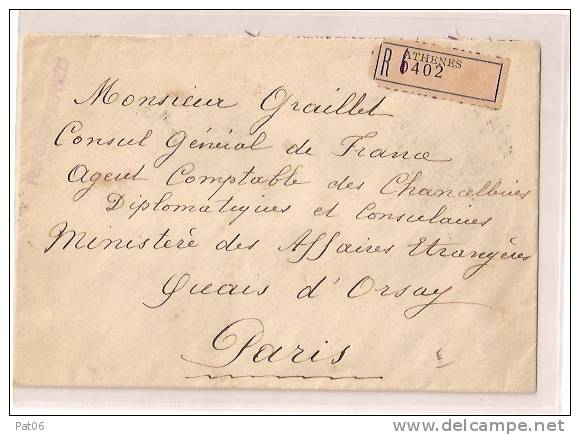 R ATHENES
6402
Monsieur Graillet
Consul Général de France
Agent Comptable des Chancelleries
Diplomatiques et Consulaires
Ministère des Affaires Etrangères
Quais d'Orsay
Paris
Pat06
www.delcampe.net